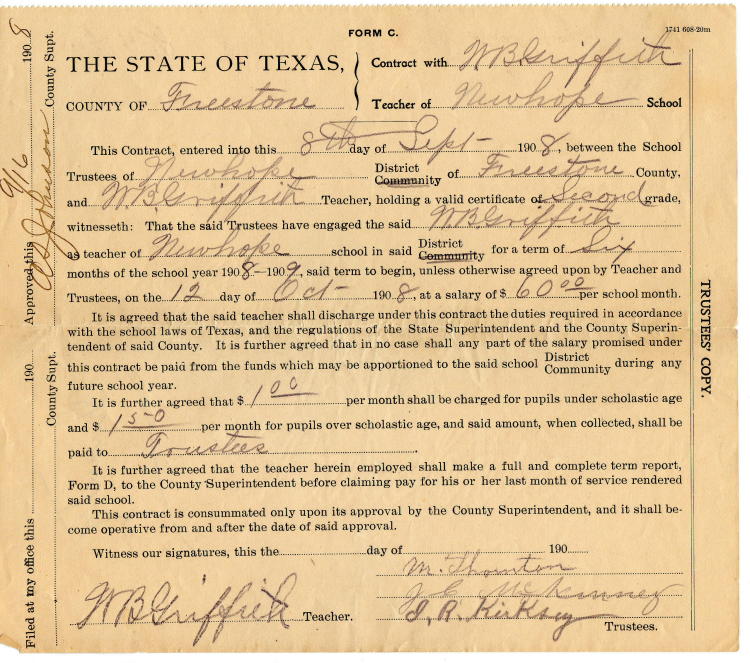 FORM C.
1741 608-20m
THE STATE OF TEXAS,
COUNTY OF Freestone
Contract with W B Griffith
Teacher of Newhope School
This Contract, entered into this 8th day of Sept 1908, between the School
Trustees of Newhope District Community of Freestone County,
and W B Griffith Teacher, holding a valid certificate of Second grade,
witnesseth: That the said Trustees have engaged the said W B Griffith
as teacher of Newhope school in said District Community for a term of Six
months of the school year 1908-1909, said term to begin, unless otherwise agreed upon by Teacher and
Trustees, on the 12 day of Oct 1908, at a salary of $ 60 00 per school month.
It is agreed that the said teacher shall discharge under this contract the duties required in accordance
with the school laws of Texas, and the regulations of the State Superintendent and the County Superin-
tendent of said County. It is further agreed that in no case shall any part of the salary promised under
this contract be paid from the funds which may be apportioned to the said school District Community during any
future school year.
It is further agreed that $ 1 00 per month shall be charged for pupils under scholastic age
and $ 1 50 per month for pupils over scholastic age, and said amount, when collected, shall be
paid to Trustees.
It is further agreed that the teacher herein employed shall make a full and complete term report,
Form D, to the County Superintendent before claiming pay for his or her last month of service rendered
said school.
This contract is consummated only upon its approval by the County Superintendent, and it shall be-
come operative from and after the date of said approval.
Witness our signatures, this the day of 190
M. Thornton
J E McKinney
J. R. Kirksey
W B Griffith Teacher.
Trustees.
TRUSTEES' COPY.
Approved this 9/16 1908
Johnson County Supt.
Filed at my office this 190
County Supt.